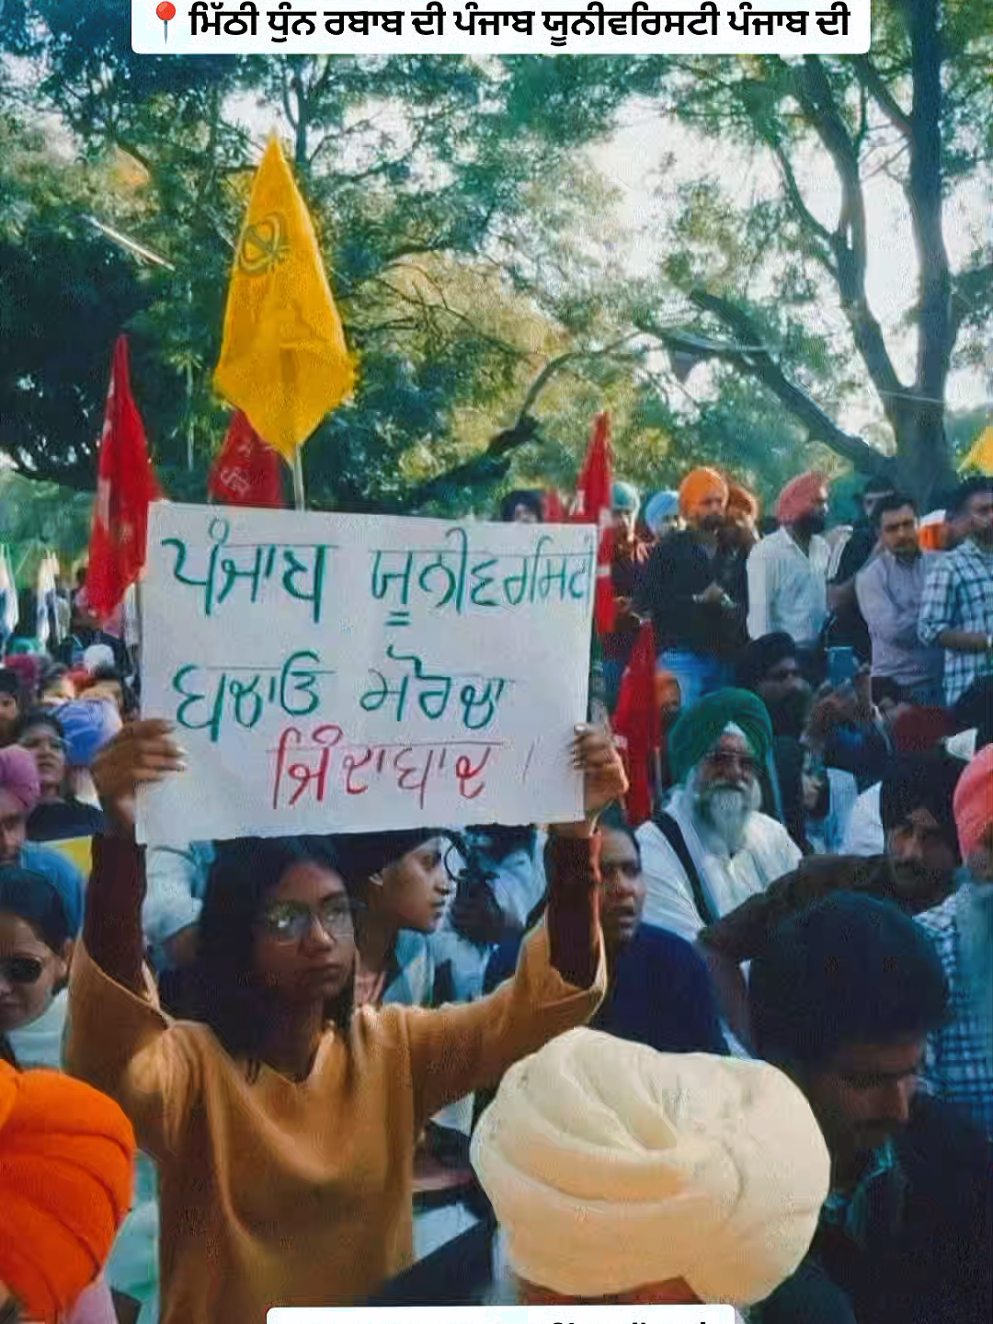 📍ਮਿੱਠੀ ਧੁੰਨ ਰਬਾਬ ਦੀ ਪੰਜਾਬ ਯੂਨੀਵਰਿਸਟੀ ਪੰਜਾਬ ਦੀ
ਪੰਜਾਬ ਯੂਨੀਵਰਸਿਟੀ
ਬਚਾਓ ਮੋਰਚਾ
ਜ਼ਿੰਦਾਬਾਦ ।